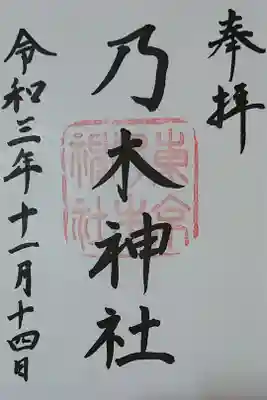 奉拝
乃木神社
令和三年十一月十四日